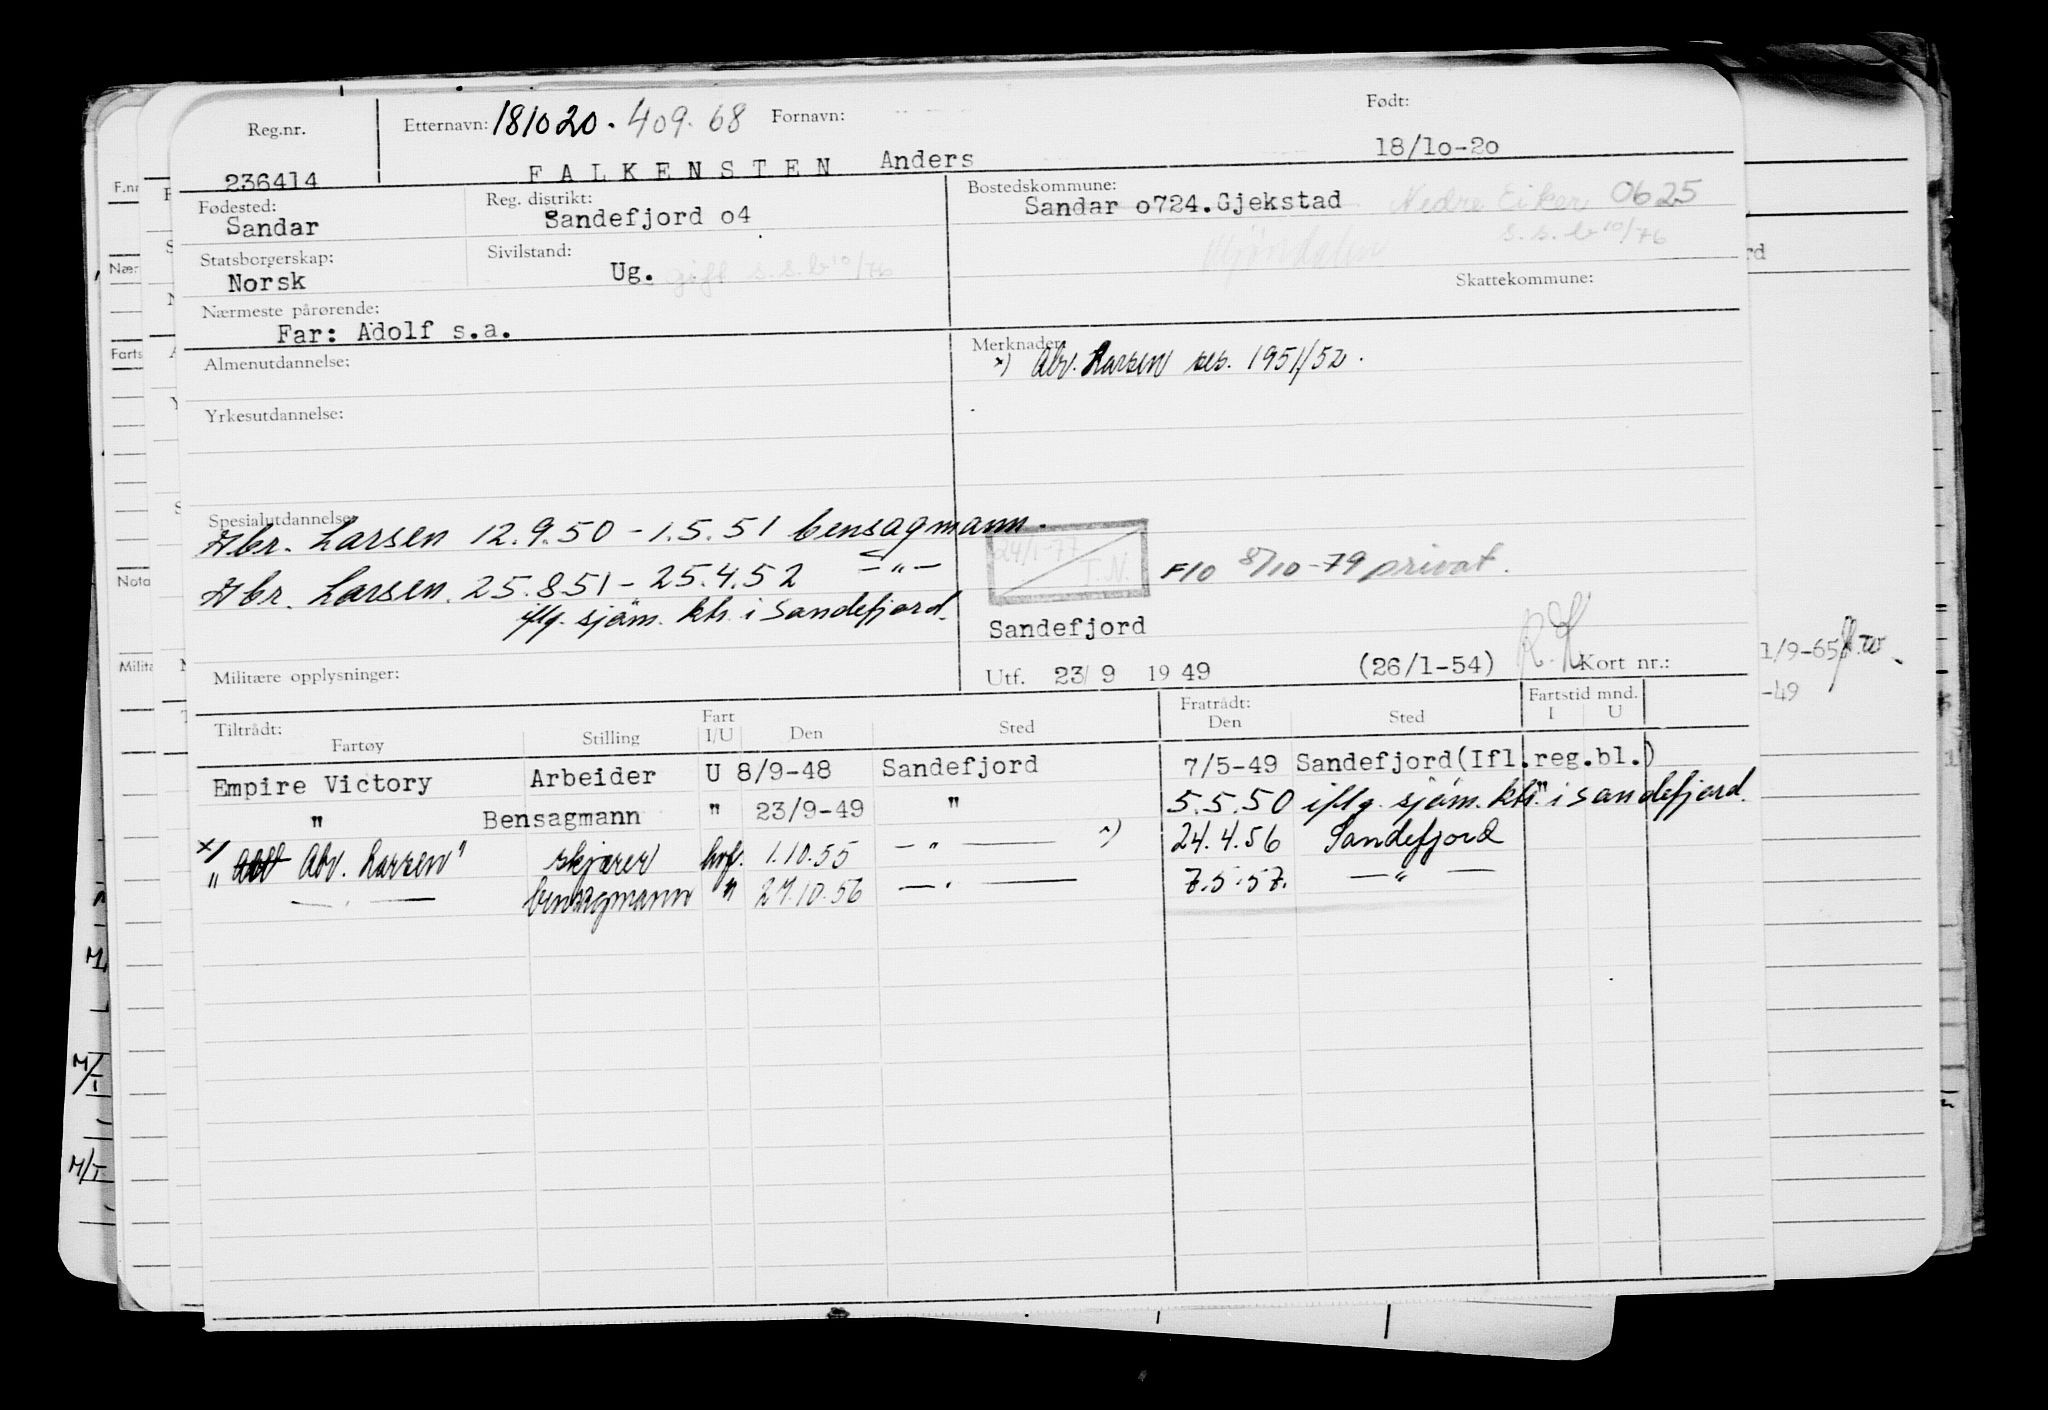 Reg.nr. Etternavn: 181020. 409.68 Fornavn: Født:
236414 FALKENSTEN Anders 18/1o-2o
Fødested: Reg. distrikt: Bostedskommune:
Sandar Sandefjord o4 Sandar o724.Gjekstad Nedre Eiker 0625
Mjöndalen s.s.b 10/76
Statsborgerskap: Sivilstand:
Norsk Ug. gift s.s.b 10/76 Skattekommune:
Nærmeste pårørende:
Far: Adolf s.a.
Almenutdannelse: Merknader
x) Abr. Larsen ses. 1951/52.
Yrkesutdannelse:
Spesialutdannelse
Abr. Larsen 12.9.50 - 1.5.51 bensagmann.
Abr. Larsen. 25.8.51 - 25.4.52 - " -
iflg. sjöm. ktr. i Sandefjord.
24/1-77
T.N. F10 8/10-79 privat.
Sandefjord
Militære opplysninger: Utf. 23/ 9 19 49 (26/1-54) R.H Kort nr.:
Tiltrådt: Fratrådt: Fartstid mnd.
Fartøy Stilling Fart I/U Den Sted Den Sted I U
Empire Victory Arbeider U 8/9-48 Sandefjord 7/5-49 Sandefjord(Ifl.reg.bl.)
" Bensagmann " 23/9-49 " 5.5.50 iflg. sjöm. ktr. i Sandefjord.
x) " Abr. Larsen" skjærer hvf. 1.10.55 - " - x) 24.4.56 Sandefjord
- " - bensagmann " 27.10.56 - " - 7.5.57. - " -
F.nr
Nær
Farts
Nota
Milita
rd
1/9-65
-49
M/I
M/I